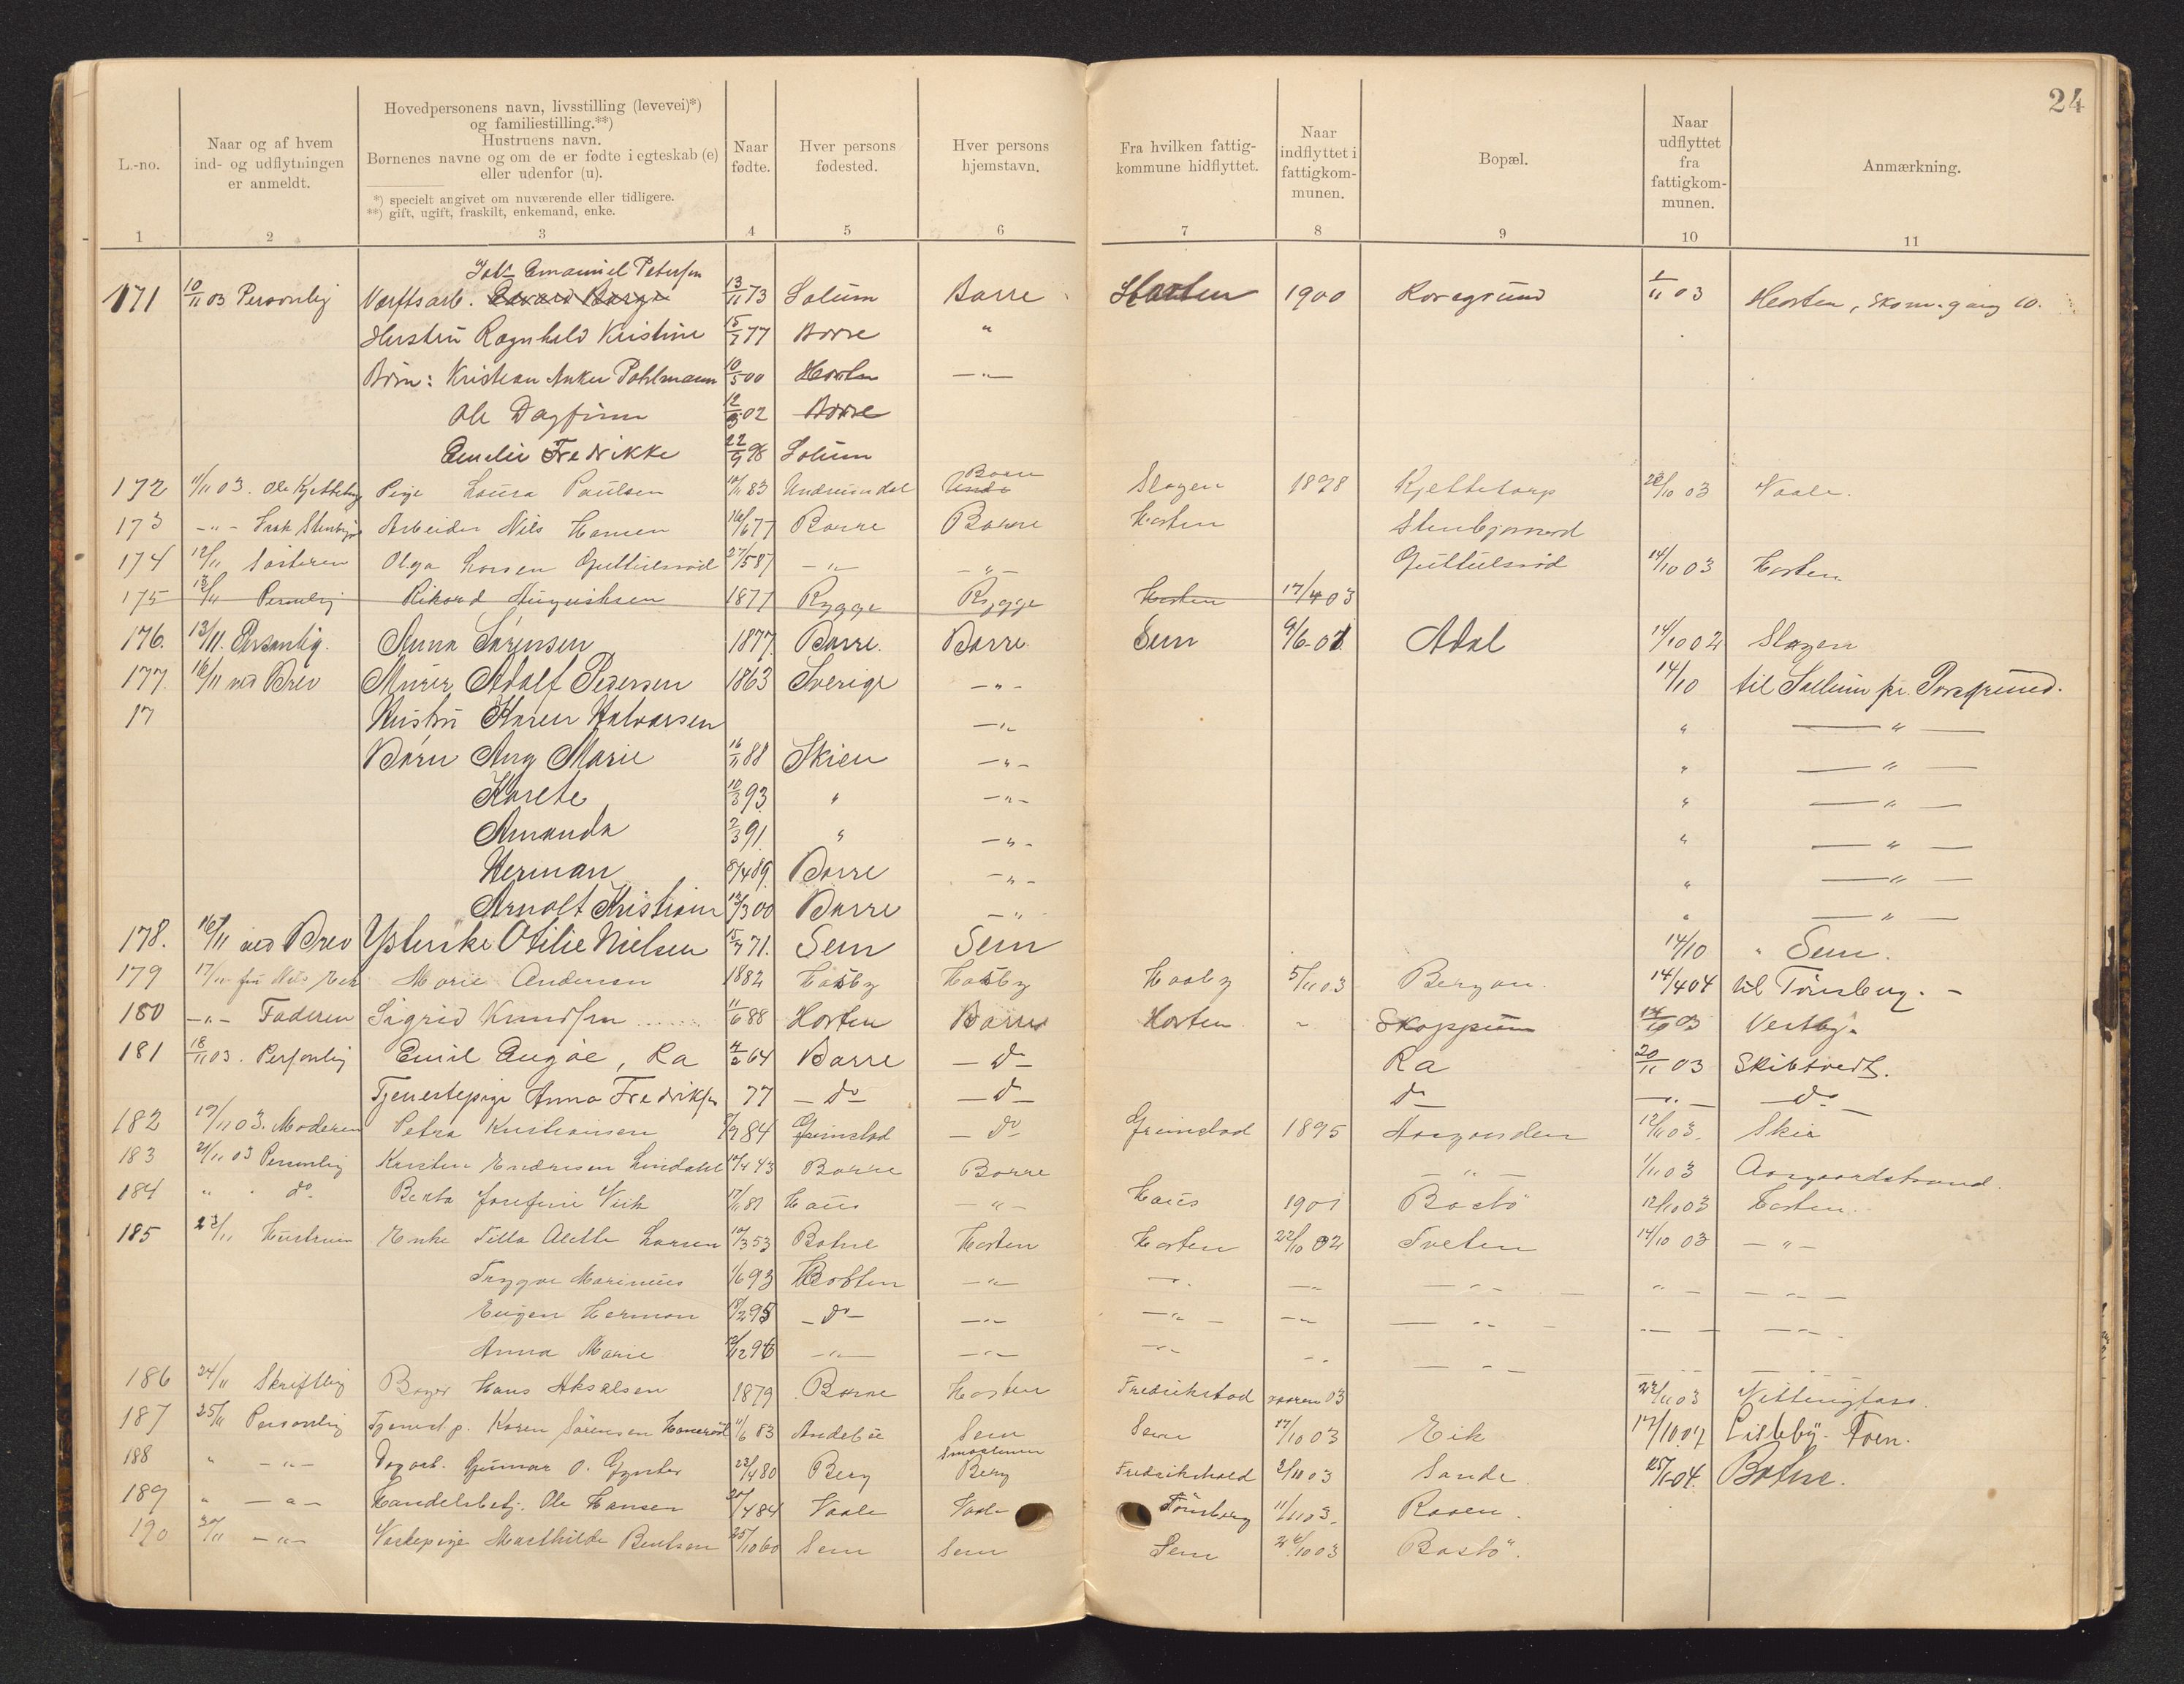 24
L.-no.
Naar og af hvem ind- og udflytningen er anmeldt.
Hovedpersonens navn, livsstilling (levevei)*) og familiestilling.**)
Hustruens navn.
Børnenes navne og om de er fødte i egteskab (e) eller udenfor (u).
*) specielt angivet om nuværende eller tidligere.
**) gift, ugift, fraskilt, enkemand, enke.
Naar fødte.
Hver persons fødested.
Hver persons hjemstavn.
Fra hvilken fattigkommune hidflyttet.
Naar indflyttet i fattigkommunen.
Bopæl.
Naar udflyttet fra fattigkommunen.
Anmærkning.
1 2 3 4 5 6 7 8 9 10 11
Emanuel Petersen
171 10/11 03 Personlig Værftsarb. 13/11 73 Solum Borre Horten 1900 1/11 03 Horten, 10.
Hustru Ragnhild Kristine 15/7 77 Borre "
Børn: Kristian Anker Pohlmann 10/5 00 Horten —"—
Ole Dagfinn 02 Borre
Emelie Fredrikke 22/9 98 Solum
172 11/11 03. Ole Pige Laura Paulsen 10/11 83 Undrumsdal Borre Slagen 1898 Kjeltetorp 28/10 03 Vaale.
173 —"— Arbeider Nils Hansen 77 Borre Borre Horten
174 12/11 Søsteren Olga Larsen Guttulsrød 27/5 87 —"— —"— Guttulsrød 14/10 03 Horten
175 13/11 Personlig Rikard Augustsen 1877 Rygge Rygge Horten 17/4 03
176. 13/11. Personlig. Anna Sørensen 1877. Borre. Borre. Sem 9/6-01 Adal 14/10 02 Slagen
177. 16/11 ved Brev Murer Adolf Pedersen 1863 Sverige —"— 14/10 til Sollum pr. Porsgrund.
17 Hustru Karen Halvorsen —"— " —"—
Børn Aug Marie 16/11 88 Skien —"— " —"—
Karete 93 " —"— " —"—
Amanda 2/3 91. " —"— " —"—
Herman 8/4 89. Borre —"— " —"—
Arnolt Kristian 00 Borre —"— " —"—
178. 16/11 ved Brev Otilie Nielsen 15/7 71. Sem Sem 14/10 " Sem.
179 17/11 Nils Marie Andersen 1882 Haaby Haaby Haaby 5/11 03 Bergan. 14/4 04 til Tønsberg. —
180 —"— Faderen Sigrid Knudsen 11/6 88 Horten Borre Horten Skoppum 03 Vestby.
181 18/11 03. Personlig Emil Engøe, Ra 4/2 64 Borre —do— Ra 20/11 03 Skibtvedt.
Tjenestepige Anna Fredriksen 77 —do— —do— do —"— —do—
182 19/11 03. Moderen Petra Kristiansen 84 Grimstad —do— Grimstad 1895 12/11 03. Skie
183 21/11 03 Personlig Karsten Endresen Lindahl 43 Borre Borre —"— 1/11 03 Aasgaardstrand.
184 " " do Berta Josefine Vik 17/11 81 Haus —"— Haus 1901 Bastø 12/10 03 Horten.
185 23/11 Hustruen Enke Tilla Alette Larsen 10/3 53 Botne Horten Horten 22/10 02 Tveten 14/10 03 —"—
Trygve Marinius 1/6 93 Horten —"—
Eugen Herman 2 95 —do— —"—
Anna Marie 12 96 —"— —"—
186 24/11 Skriftlig Bager Hans Akselsen 1879 Borre Horten Fredrikstad vaaren 03 22/11 03
187 25/11 Personlig Tjenestp. Karen Sørensen 11/6 83 Andebu Sem Sem 17/10 03 Eik 17/10.07 Foen.
188 " —"— Dagarb. Gunnar O. 22/4 80 Berg Smaalenene Berg Fredrikshald 2/11 03 Sande 04. Botne.
189 " —"— Handelsbetj. Ole Hansen 4 84 Vaale Vaale Tønsberg 11/11 03. Raaen.
190 30/11 —"— Vaskepige Mathilde Bentsen 25/10 60 Sem Sem Sem 10 03 Bastø.